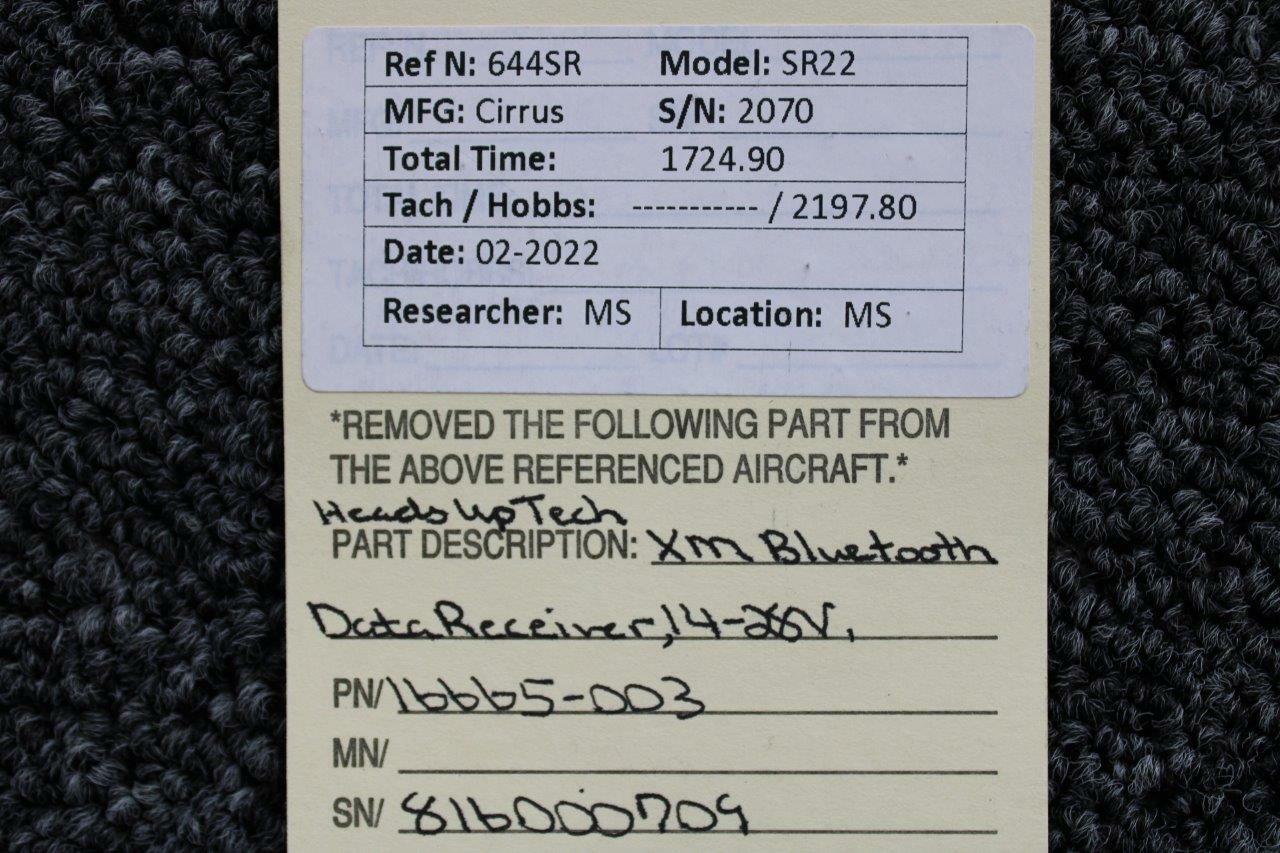 Ref N: 644SR Model: SR22
MFG: Cirrus S/N: 2070
Total Time: 1724.90
Tach / Hobbs: ----------- / 2197.80
Date: 02-2022
Researcher: MS Location: MS
*REMOVED THE FOLLOWING PART FROM
THE ABOVE REFERENCED AIRCRAFT.*
Heads Up Tech
PART DESCRIPTION: XM Bluetooth
Data Receiver, 14-28V,
PN/ 16665-003
MN/
SN/ 816000709